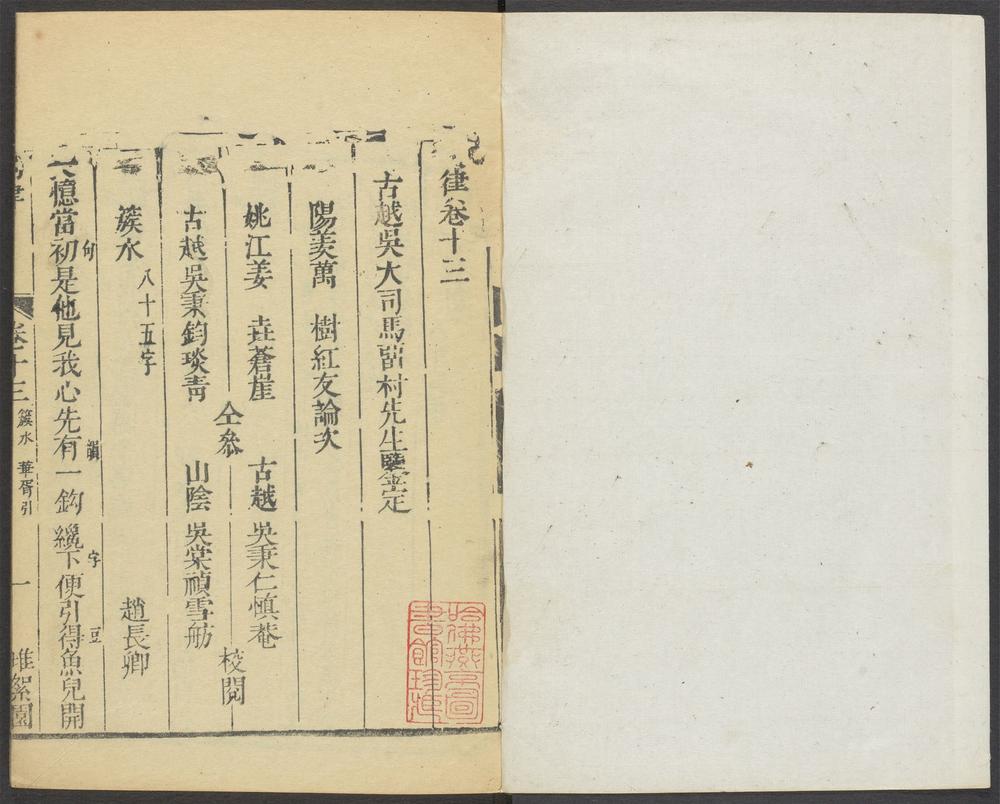 律卷十三
古越吳大司馬留村先生鑒定
陽羨萬　樹紅友論次
姚江姜　垚蒼崖　古越吳秉仁慎菴
仝叅　校閱
古越吳秉鈞琰靑　山陰吳棠禎雪舫
簇水　八十五字　趙長卿
憶當初句是他見我心先有韻一鈎纔下字便引得豆魚兒開
律　卷十三　簇水　華胥引　一　堆絮園
哈佛燕京圖書館珍藏